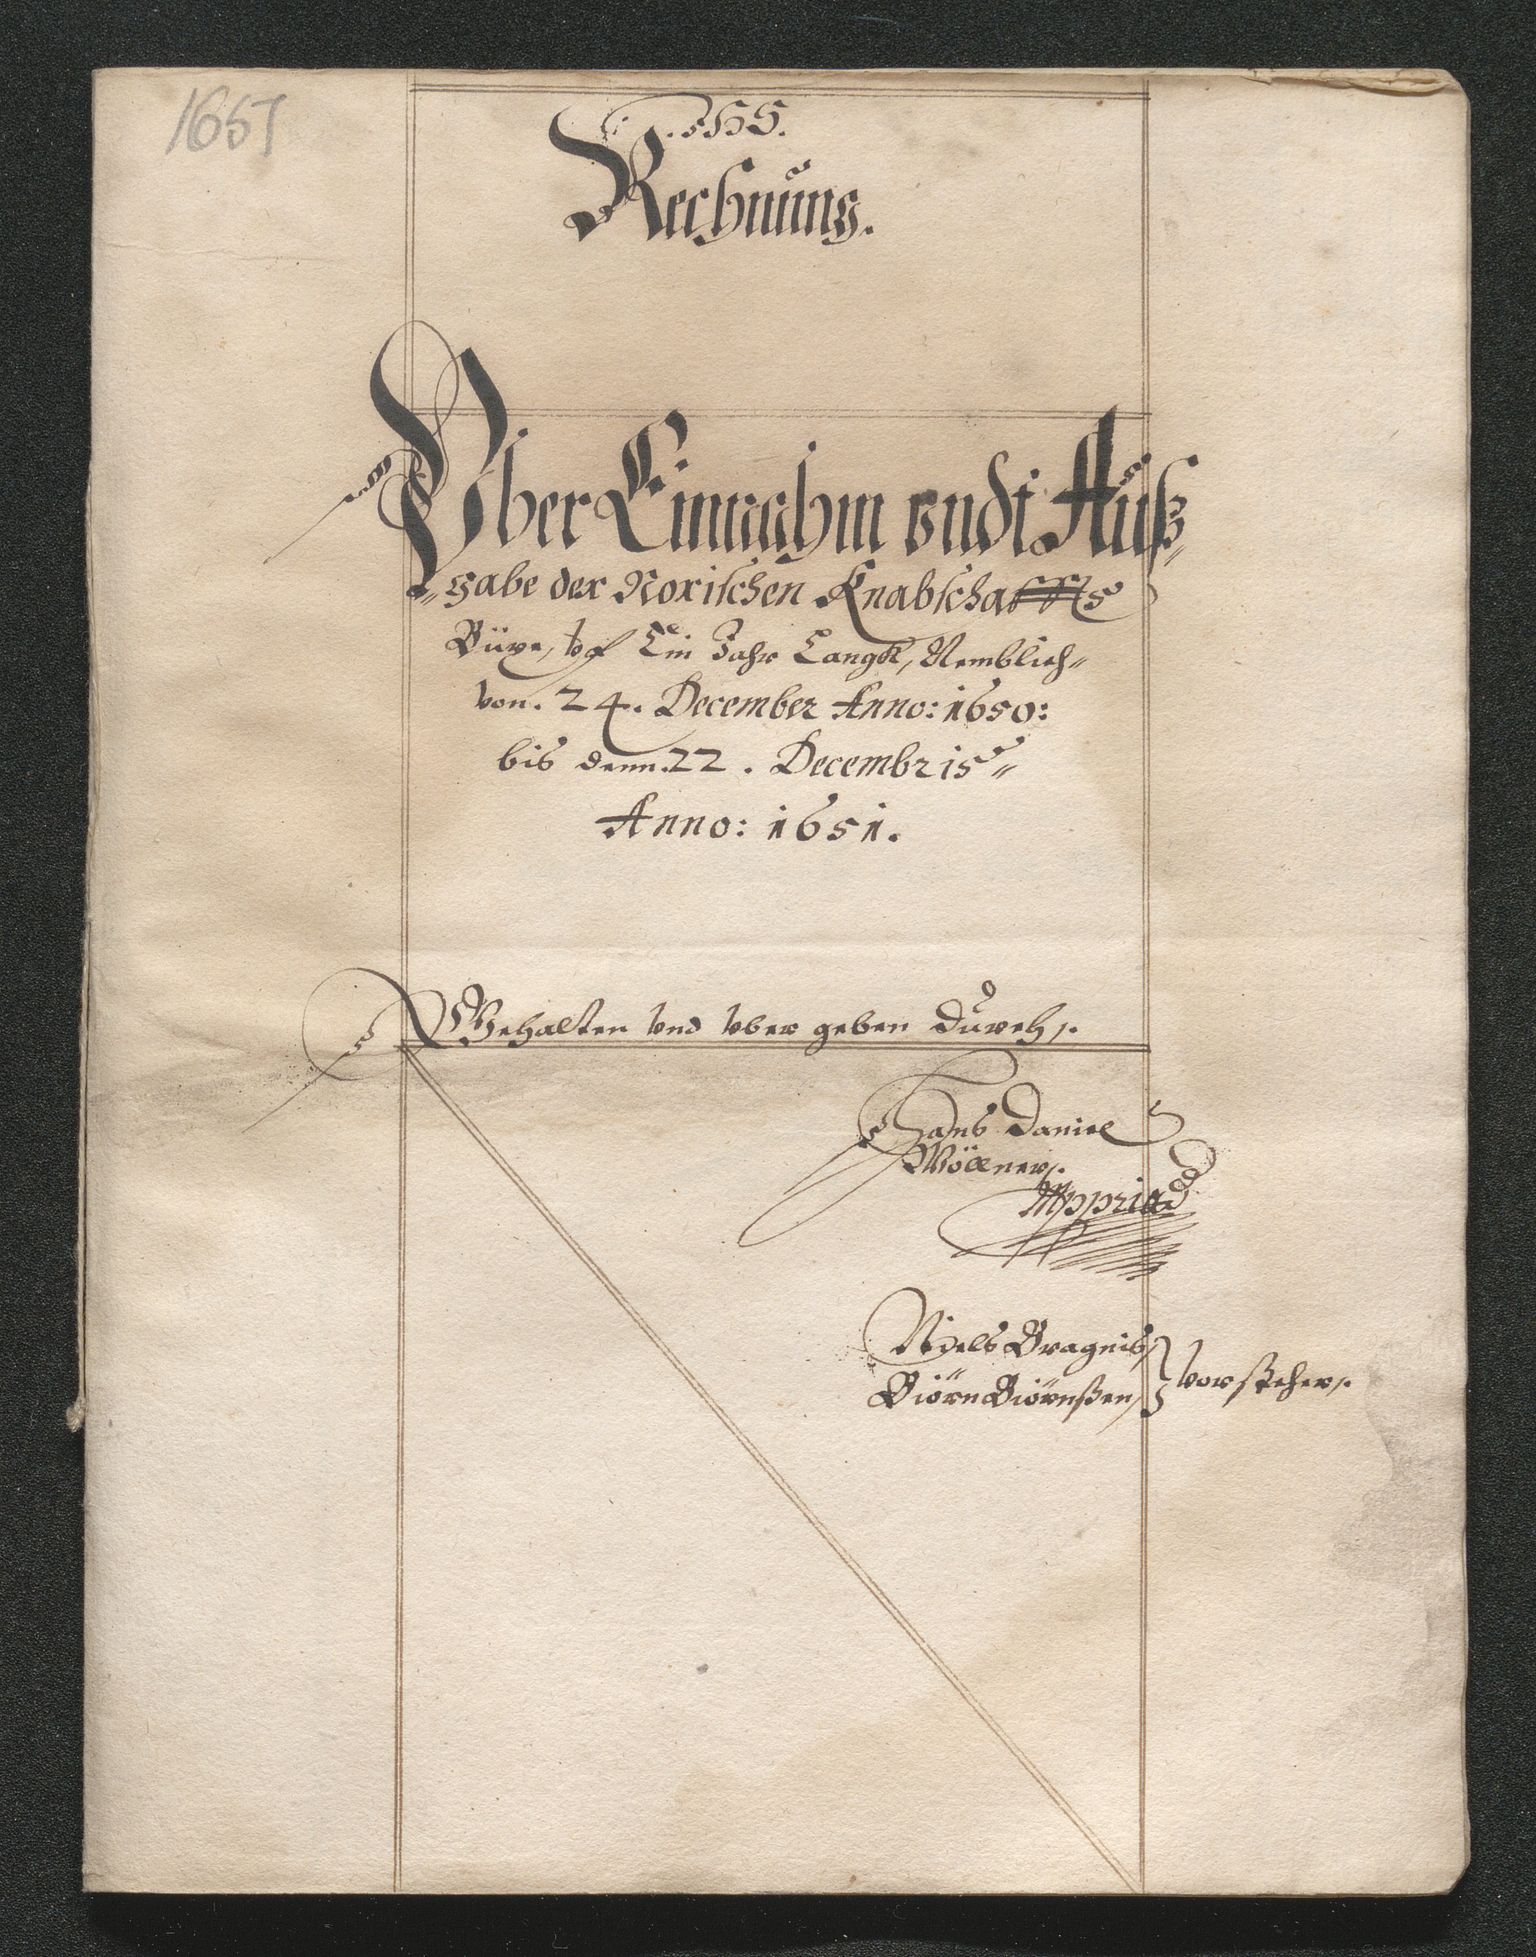 1651
Rechnung.
Vber Einnahm vndt Auß„
„gabe der Norischen Knabschaffts
Büxe, vf Ein Jahr Langk, Nemblich„
von. 24. December Anno: 1650:
bis denn. 22. Decembris„
Anno: 1651.
Gehalten vnd vber geben durch,.
Hans Daniel
Wöllner,.
Mppria
Niels Bragnis,
Biörn Biörnßen, Vorsteher,.